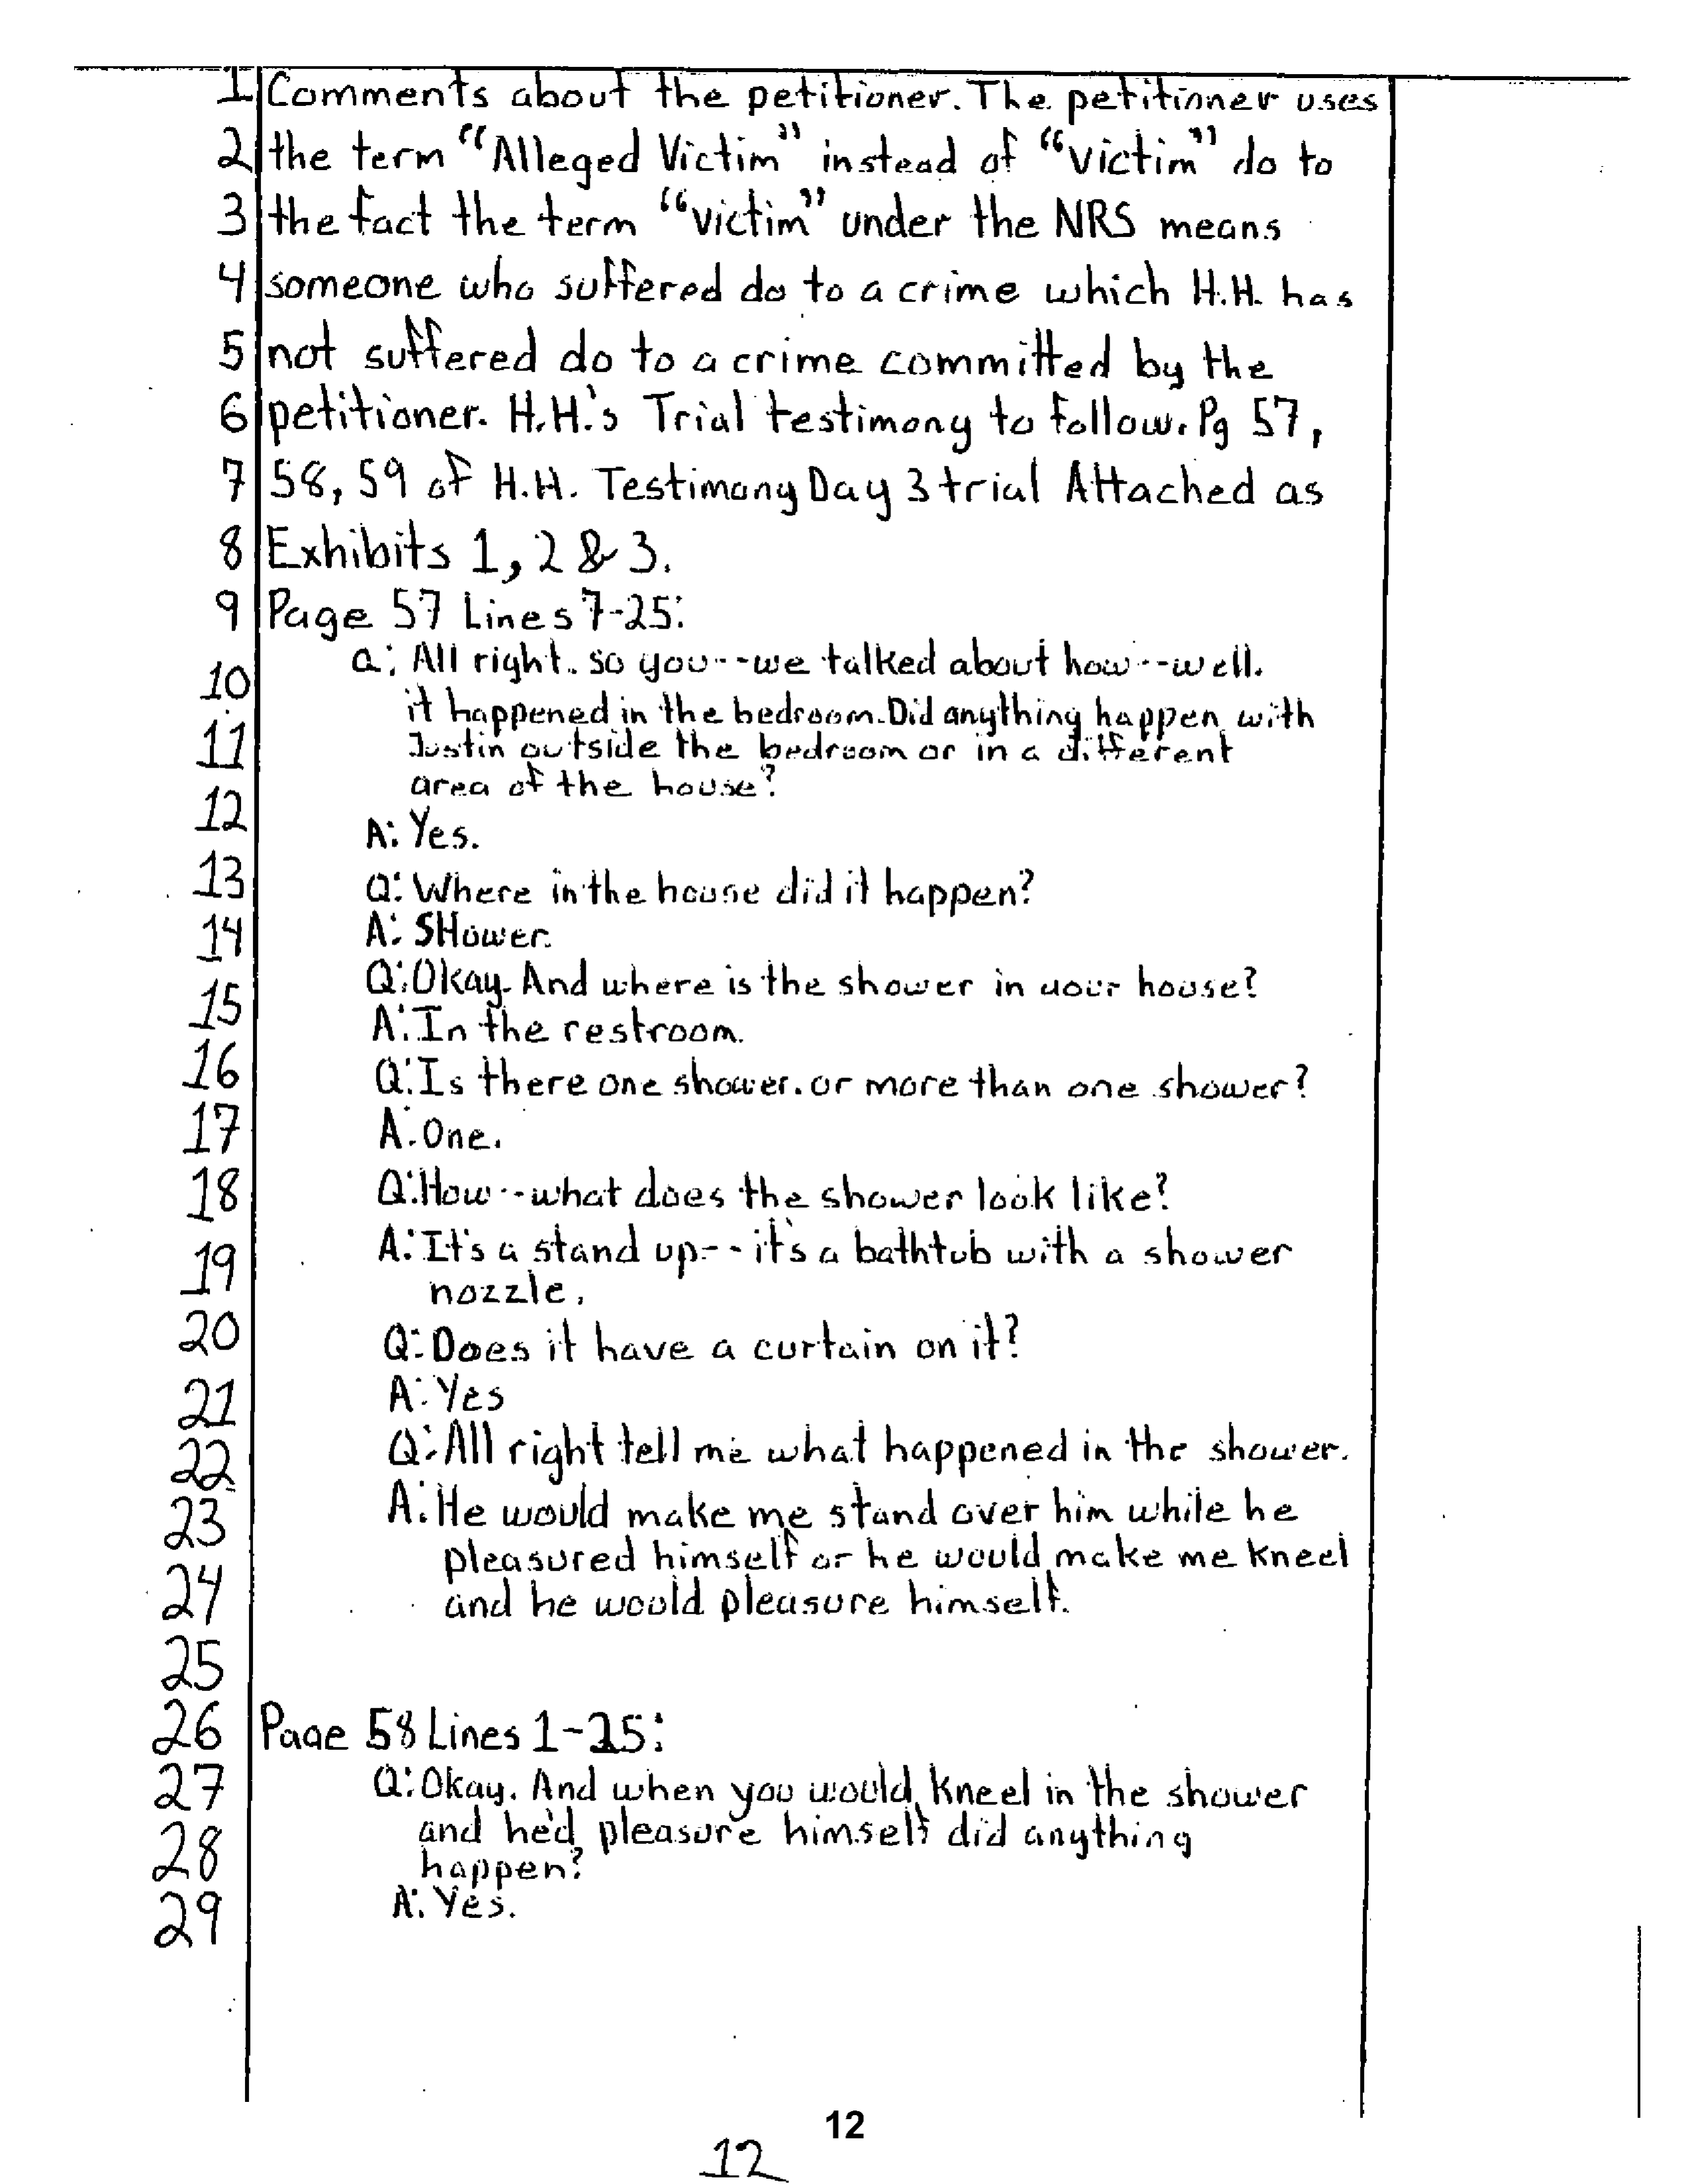 1 Comments about the petitioner. The petitioner uses
2 the term "Alleged Victim" instead of "victim" do to
3 the fact the term "victim" under the NRS means
4 someone who suffered do to a crime which H.H. has
5 not suffered do to a crime committed by the
6 petitioner. H.H.'s Trial testimony to follow. Pg 57,
7 58, 59 of H.H. Testimony Day 3 trial Attached as
8 Exhibits 1, 2 & 3.
9 Page 57 Lines 7-25:
10 Q: All right. so you--we talked about how--well.
it happened in the bedroom. Did anything happen with
11 Justin outside the bedroom or in a different
area of the house?
12 A: Yes.
13 Q: Where in the house did it happen?
14 A: SHower.
15 Q: Okay. And where is the shower in your house?
A: In the restroom.
16 Q: Is there one shower. or more than one shower?
17 A: One.
18 Q: How--what does the shower look like?
19 A: It's a stand up-- it's a bathtub with a shower
nozzle.
20 Q: Does it have a curtain on it?
21 A: Yes
22 Q: All right tell me what happened in the shower.
23 A: He would make me stand over him while he
pleasured himself or he would make me kneel
24 and he would pleasure himself.
25
26 Page 58 Lines 1-25:
27 Q: Okay. And when you would kneel in the shower
28 and he'd pleasure himself did anything
happen?
29 A: Yes.
12
12